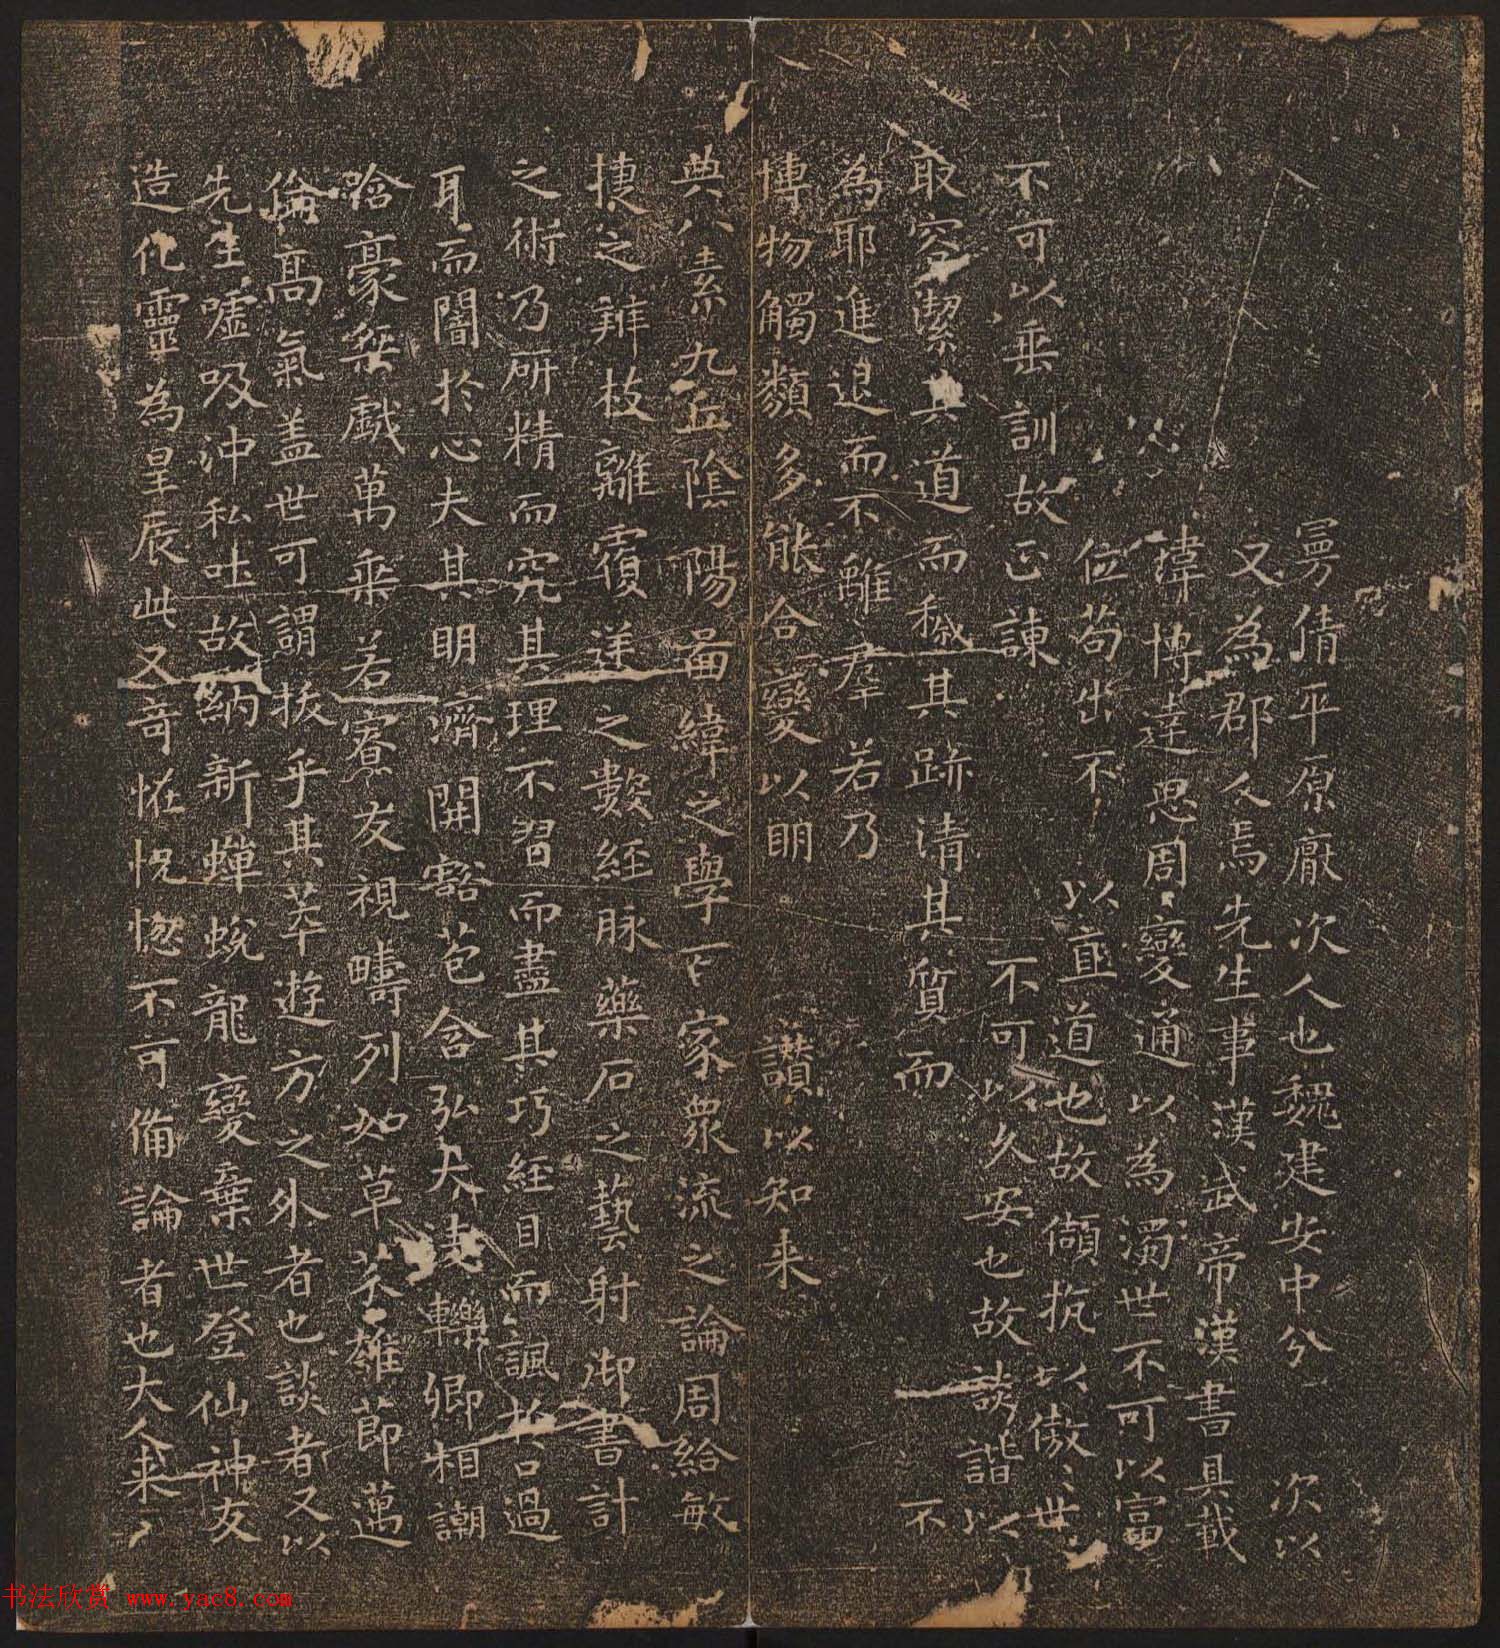 曼倩平原厭次人也魏建安中分 次以
又為郡人焉先生事漢武帝漢書具載
瑋博達思周變通以為濁世不可以富
位苟出不 以直道也故傾抗以傲世世
不可以垂訓故正諫 不可以久安也故談諧以
取容潔其道而穢其跡清其質而 不
為耶進退而不離群若乃
博物觸類多能合變以明 讚以知来
典八素九丘陰陽啚緯之學百家眾流之論周給敏
捷之辨枝離覆逆之數經脉藥石之藝射御書計
之術乃研精而究其理不習而盡其巧經目而諷於口過
耳而闇於心夫其明濟開豁苞含弘大淩轢卿相潮
哈豪桀戲萬乘若寮友視疇列如草芥雄節邁
倫高氣盖世可謂拔乎其萃遊方之外者也談者又以
先生噓吸沖和吐故納新蟬蛻龍變棄世登仙神友
造化靈為星辰此又奇恠怳惚不可備論者也大人来
书法欣赏 www.yac8.com